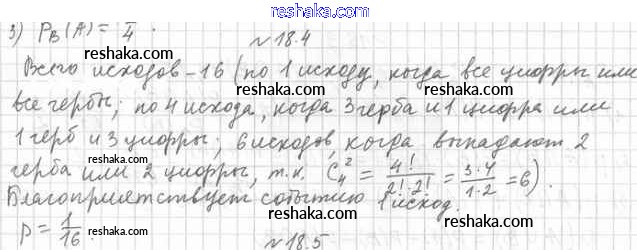 3) P_B(A) = 1/4.
reshaka.com
reshaka.com
№18.4
Всего исходов - 16 (по 1 исходу, когда все цифры или
reshaka.com
все гербы; по 4 исхода, когда 3 герба и 1 цифра или
reshaka.com
1 герб и 3 цифры; 6 исходов, когда выпадают 2
reshaka.com
герба или 2 цифры, т.к. C_4^2 = 4!/(2!·2!) = 3·4/(1·2) = 6).
reshaka.com
Благоприятствует событию 1 исход.
reshaka.com
P = 1/16.
reshaka.com
№18.5